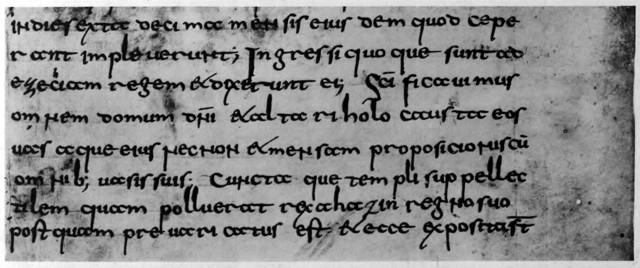 indie sexta deci ma mensis eius dem quod cepe
rant impleuerunt; Ingressi quo que sunt ad
ezeciam regem &dixerunt ei; Sc̄i ficauimus
omnem domum dñi &alta ri holo caus ta eos
uas aque eius necnon &mensam proposicionis cū
omnib; uasis suis. Cuncta que templi suppellec
tilem quam polluerat rex ahaz in regno suo
post quam preuari catus est &ecce exposita s̄t